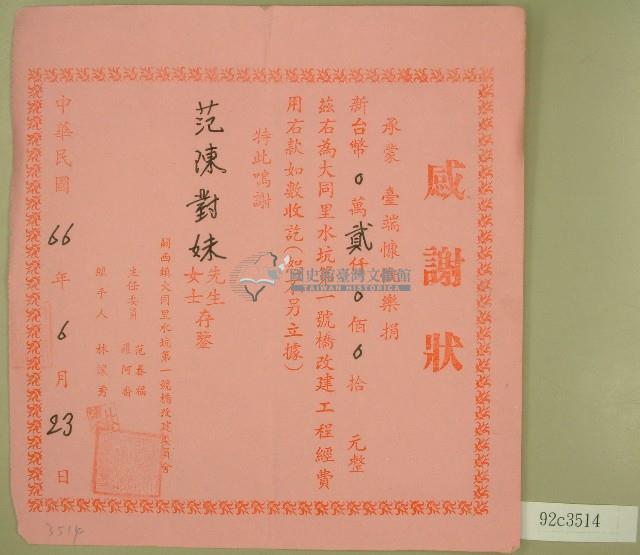 感謝狀
承蒙 臺端慷 樂捐
新台幣0萬貳仟0佰0拾 元整
茲右為大同里水坑 一號橋改建工程經費
用右款如數收訖( 另立據)
特此鳴謝
范陳對妹
先生
女士
存鑒
關西鎮大同里水坑第一號橋改建委員會
主任委員
范春福
羅阿
經手人 林 秀
中華民國66年6月23日
國史館臺灣文獻館
TAIWAN HISTORICA
92c3514